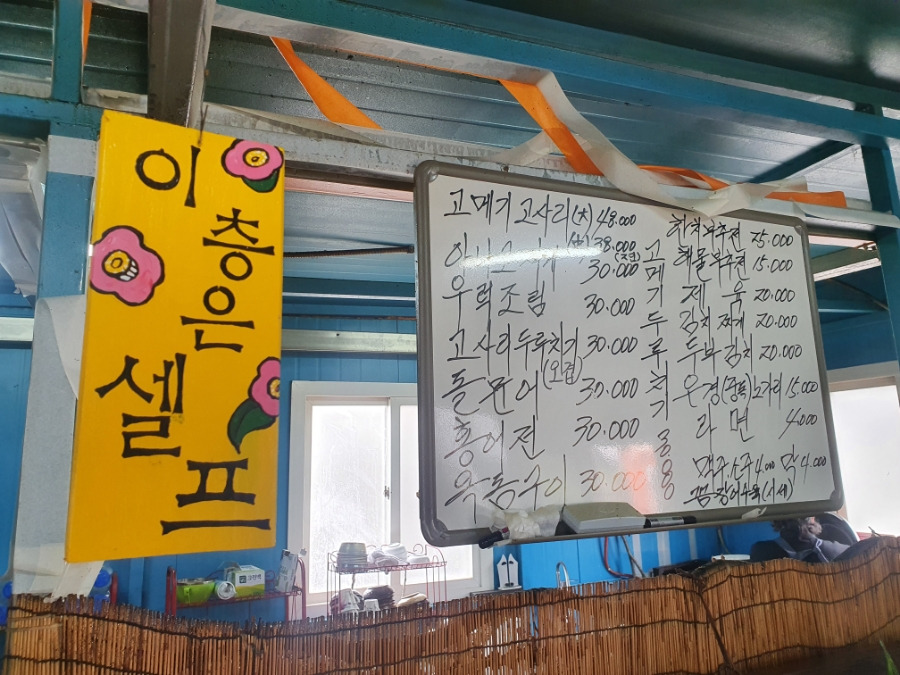 이
층은
셀
프
고메기고사리(大) 48.000
(中) 38.000
30.000
우럭조림 30.000
고사리두루치기 30.000
(오겹)
돌문어 30.000
홍어전 30.000
옥돔구이 30.000
고메기두루치기용
파전 25.000
해물파전 15.000
제육 20.000
김치찌개 20.000
두부김치 20.000
노가리 15.000
라면 4.000
맥주,소주 4.000 막 4.000
장어수육(시세)